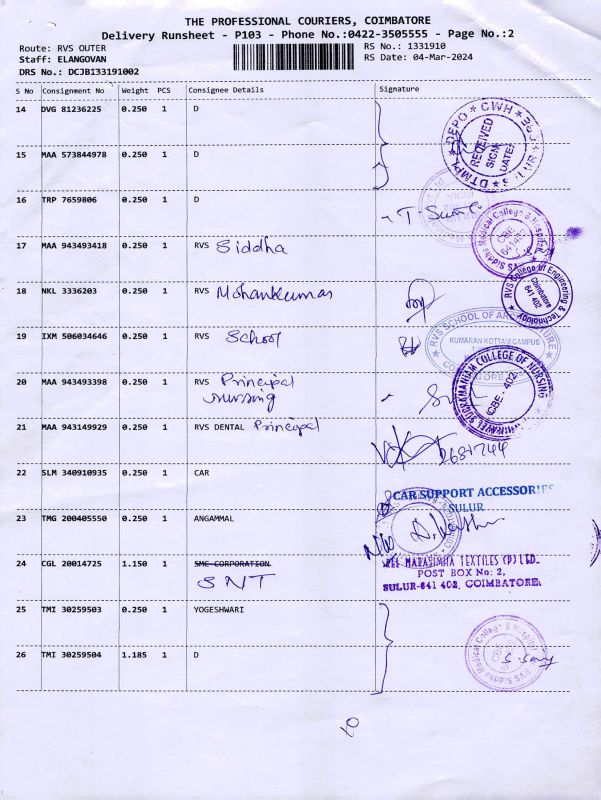 THE PROFESSIONAL COURIERS, COIMBATORE
Delivery Runsheet - P103 - Phone No.:0422-3505555 - Page No.:2
Route: RVS OUTER
RS No.: 1331910
Staff: ELANGOVAN
RS Date: 04-Mar-2024
DRS No.: DCJB133191002
S No Consignment No Weight PCS Consignee Details Signature
14 DVG 81236225 0.250 1 D
DTMPL DEPO CWH
RECEIVED
SIGN
DATE
15 MAA 573844978 0.250 1 D
16 TRP 7659806 0.250 1 D
17 MAA 943493418 0.250 1 RVS Siddha
RVS Siddha Medical College & Hospital
CBE
641 402
18 NKL 3336203 0.250 1 RVS Mohankumar
RVS College of Engineering & Technology
Coimbatore
641 402
19 IXM 506034646 0.250 1 RVS School
RVS SCHOOL OF ARCHITECTURE
KUMARAN KOTTAM CAMPUS
20 MAA 943493398 0.250 1 RVS Principal
nursing
COLLEGE OF NURSING
CBE - 402
21 MAA 943149929 0.250 1 RVS DENTAL Principal
22 SLM 340910935 0.250 1 CAR
CAR SUPPORT ACCESSORIES
SULUR
23 TMG 200405550 0.250 1 ANGAMMAL
24 CGL 20014725 1.150 1 SMC CORPORATION
SNT
NARASIMHA TEXTILES (P) LTD.
POST BOX No: 2,
SULUR-641 402, COIMBATORE.
25 TMI 30259503 0.250 1 YOGESHWARI
26 TMI 30259504 1.185 1 D
RVS Siddha Medical College & Hospital